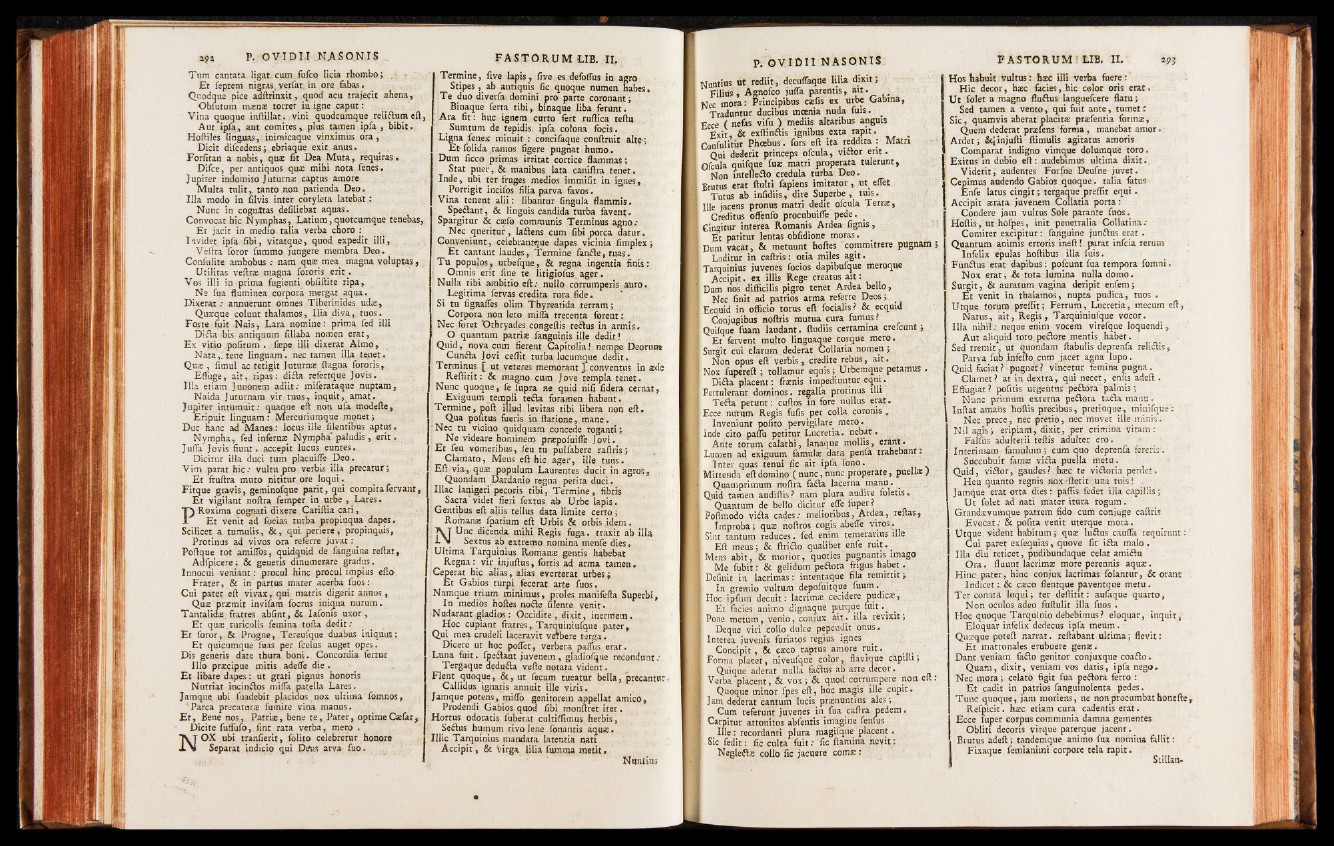 292 P. OVIDII NASONIS
Tum cantata ligat cum fuſco licia rhombo;
Et ſeptem nigras verſat in ore fabas.
Quodque pice adſtrinxit, quod acu trajecit ahena,
Obſutum mænæ torret in igne caput:
Vina quoque inſtillat. vini quodcumque relictum eſt,
Aut ipſa, aut comites, plus tamen ipſa, bibit.
Hoſtiles linguas, inimicaque vinximus ora,
Dicit diſcedens; ebriaque exit anus.
Forſitan a nobis, quæ ſit Dea Muta, requiras.
Diſce, per antiquos quæ mihi nota ſenes.
Jupiter indomito Juturnæ captus amore
Multa tulit, tanto non patienda Deo.
Illa modo in ſilvis inter coryleta latebat:
Nunc in cognatas deſiliebat aquas.
Convocat hic Nymphas, Latium quotcumque tenebas,
Et jacit in medio talia verba choro:
Invidet ipſa ſibi, vitatque, quod expedit illi,
Veſtra ſoror ſummo jungere membra Deo.
Conſulite ambobus: nam quæ mea magna voluptas,
Utilitas veſtræ magna ſororis erit.
Vos illi in prima fugienti obſiſtite ripa,
Ne ſua fluminea corpora mergat aqua.
Dixerat: annuerunt omnes Tiberinides udæ,
Quæque colunt thalamos, Ilia diva, tuos.
Forte fuit Nais, Lara nomine: prima ſed illi
Dicta bis antiquum ſillaba nomen erat,
Ex vitio poſitum. ſæpe illi dixerat Almo,
Nata, tene linguam. nec tamen illa tenet.
Quæ, ſimul ac tetigit Juturnæ ſtagna ſororis,
Effuge, ait, ripas: dicta refertque Jovis.
Illa etiam Junonem adiit: miſerataque nuptam,
Naida Juturnam vir tuus, inquit, amat.
Jupiter intumuit: quaque eſt non uſa modeſte,
Eripuit linguam: Mercuriumque monet;
Duc hanc ad Manes: locus ille ſilentibus aptus.
Nympha, ſed infernæ Nympha paludis, erit.
Juſſa Jovis fiunt. accepit lucus euntes.
Dicitur illa duci tum placuiſſe Deo.
Vim parat hic: vultu pro verbis illa precatur;
Et fruſtra muto nititur ore loqui.
Fitque gravis, geminoſque parit, qui compita ſervant,
Et vigilant noſtra ſemper in urbe, Lares.
PRoxima cognati dixere Cariſtia cari,
Et venit ad ſocias turba propinqua dapes.
Scilicet a tumulis, &, qui periere, propinquis,
Protinus ad vivos ora referre juvat:
Poſtque tot amiſſos, quidquid de ſanguine reſtat,
Adſpicere; & generis dinumerare gradus.
Innocui veniant: procul hinc procul impius eſto
Frater, & in partus mater acerba ſuos:
Cui pater eſt vivax, qui matris digerit annos,
Quæ præmit inviſam ſocrus iniqua nurum.
Tantalidæ fratres abſint, & Iaſonis uxor,
Et quæ ruricolis ſemina toſta dedit:
Et ſoror, & Progne, Tereuſque duabus iniquus:
Et quicumque ſuas per ſcelus auget opes.
Dis generis date thura boni. Concordia fertur
Illo præcipue mitis adeſſe die.
Et libate dapes: ut grati pignus honoris
Nutriat incinctos miſſa patella Lares.
Jamque ubi ſuadebit placidos nox ultima ſomnos,
Parca precaturæ ſumite vina manus.
Et, Bene nos, Patriæ, bene te, Pater, optime Cæſar,
Dicite ſuffuſo, ſint rata verba, mero.
NOX ubi tranſierit, ſolito celebretur honore
Separat indicio qui Deus arva ſuo.
FASTORUM LIB. II.
Termine, ſive lapis, ſive es defoſſus in agro
Stipes, ab antiquis ſic quoque numen habes.
Te duo diverſa domini pro parte coronant;
Binaque ſerta tibi, binaque liba ferunt.
Ara fit: huc ignem curto fert ruſtica teſtu
Sumtum de tepidis ipſa colona focis.
Ligna ſenex minuit: conciſaque conſtruit alte;
Et ſolida ramos figere pugnat humo.
Dum ſicco primas irritat cortice flammas;
Stat puer, & manibus lata caniſtra tenet.
Inde, ubi ter fruges medios immiſit in ignes,
Porrigit inciſos filia parva favos.
Vina tenent alii: libantur ſingula flammis.
Spectant, & linguis candida turba favent.
Spargitur & cæſo communis Terminus agno:
Nec queritur, lactens cum ſibi porca datur.
Conveniunt, celebrantque dapes vicinia ſimplex;
Et cantant laudes, Termine ſancte, tuas.
Tu populos, urbeſque, & regna ingentia finis:
Omnis erit ſine te litigioſus ager.
Nulla tibi ambitio eſt: nullo corrumperis auro.
Legitima ſervas credita rura fide.
Si tu ſignaſſes olim Thyreatida terram;
Corpora non leto miſſa trecenta forent:
Nec foret Othryades congeſtis tectus in armis.
O quantum patriæ ſanguinis ille dedit!
Quid, nova cum fierent Capitolia? nempe Deorum
Cuncta Jovi ceſſit turba locumque dedit.
Terminus [ ut veteres memorant ] conventus in æde
Reſtitit: & magno cum Jove templa tenet.
Nunc quoque, ſe ſupra ne quid niſi ſidera cernat,
Exiguum templi tecta foramen habent.
Termine, poſt illud levitas tibi libera non eſt.
Qua poſitus fueris in ſtatione, mane.
Nec tu vicino quidquam concede roganti;
Ne videare hominem præpoſuiſſe Jovi.
Et ſeu vomeribus, ſeu tu pulſabere raſtris;
Clamato, Meus eſt hic ager, ille tuus.
Eſt via, quæ populum Laurentes ducit in agros,
Quondam Dardanio regna petita duci.
Illac lanigeri pecoris tibi, Termine, fibris
Sacra videt fieri ſextus ab Urbe lapis.
Gentibus eſt aliis tellus data limite certo;
Romanæ ſpatium eſt Urbis & orbis idem.
NUnc dicenda mihi Regis fuga. traxit ab illa
Sextus ab extremo nomina menſe dies.
Ultima Tarquinius Romanæ gentis habebat
Regna: vir injuſtus, fortis ad arma tamen.
Ceperat hic alias, alias everterat urbes;
Et Gabios turpi fecerat arte ſuos.
Namque trium minimus, proles manifeſta Superbi,
In medios hoſtes nocte ſilente venit.
Nudarant gladios: Occidite, dixit, inermem.
Hoc cupiant fratres, Tarquiniuſque pater,
Qui mea crudeli laceravit verbere terga.
Dicere ut hoc poſſet, verbera paſſus erat.
Luna fuit. ſpectant juvenem, gladioſque recondunt:
Tergaque deducta veſte notata vident.
Flent quoque, &, ut ſecum tueatur bella, precantur.
Callidus ignaris annuit ille viris.
Jamque potens, miſſo genitorem appellat amico,
Prodendi Gabios quod ſibi monſtret iter.
Hortus odoratis ſuberat cultiſſimus herbis,
Sectus humum rivo lene ſonantis aquæ.
Illic Tarquinius mandata latentia nati
Accipit, & virga lilia ſumma metit.
Nuntius
P. OVIDII NASONIS
Nuntius ut rediit, decuſſaque lilia dixit;
Filius, Agnoſco juſſa parentis, ait.
Nec mora: Principibus cæſis ex urbe Gabina,
Traduntur ducibus mœnia nuda ſuis.
Ecce ( nefas viſu ) mediis altaribus anguis
Exit, & exſtinctis ignibus exta rapit.
Conſulitur Phœbus. ſors eſt ita reddita: Matri
Qui dederit princeps oſcula, victor erit.
Oſcula quiſque ſuæ matri properata tulerunt,
Non intellecto credula turba Deo.
Brutus erat ſtulti ſapiens imitator, ut eſſet
Tutus ab inſidiis, dire Superbe, tuis.
Ille jacens pronus matri dedit oſcula Terræ,
Creditus offenſo procubuiſſe pede.
Cingitur interea Romanis Ardea ſignis,
Et patitur lentas obſidione moras.
Dum vacat, & metuunt hoſtes committere pugnam;
Luditur in caſtris: otia miles agit.
Tarquinius juvenes ſocios dapibuſque meroque
Accipit. ex illis Rege creatus ait:
Dum nos difficilis pigro tenet Ardea bello,
Nec ſinit ad patrios arma referre Deos;
Ecquid in officio torus eſt ſocialis? & ecquid
Conjugibus noſtris mutua cura ſumus?
Quiſque ſuam laudant. ſtudiis certamina creſcunt;
Et fervent multo linguaque corque mero.
Surgit cui clarum dederat Collatia nomen;
Non opus eſt verbis, credite rebus, ait.
Nox ſupereſt; tollamur equis; Urbemque petamus.
Dicta placent: frænis impediuntur equi.
Pertulerant dominos. regalia protinus illi
Tecta petunt: cuſtos in fore nullus erat.
Ecce nurum Regis fuſis per colla coronis,
Inveniunt poſito pervigilare mero.
Inde cito paſſu petitur Lucretia. nebat.
Ante torum calathi, lanaque mollis, erant.
Lumen ad exiguum famulæ data penſa trahebant:
Inter quas tenui ſic ait ipſa ſono.
Mittenda eſt domino ( nunc, nunc properate, puellæ )
Quamprimum noſtra facta lacerna manu.
Quid tamen audiſtis? nam plura audire ſoletis.
Quantum de bello dicitur eſſe ſuper?
Poſtmodo victa cades: melioribus, Ardea, reſtas,
Improba; quæ noſtros cogis abeſſe viros.
Sint tantum reduces. ſed enim temerarius ille
Eſt meus; & ſtricto qualibet enſe ruit.
Mens abit, & morior, quoties pugnantis imago
Me ſubit: & gelidum pectora frigus habet.
Deſinit in lacrimas: intentaque fila remittit;
In gremio vultum depoſuitque ſuum.
Hoc ipſum decuit: lacrimæ cecidere pudicæ,
Et facies animo dignaque parque fuit.
Pone metum, venio, conjux ait. illa revixit;
Deque viri collo dulce pependit onus.
Interea juvenis furiatos regius ignes
Concipit, & cæco raptus amore ruit.
Forma placet, niveuſque color, flavique capilli;
Quique aderat nulla factus ab arte decor.
Verba placent, & vox; & quod corrumpere non eſt:
Quoque minor ſpes eſt, hoc magis ille cupit.
Jam dederat cantum lucis prænuntius ales;
Cum referunt juvenes in ſua caſtra pedem.
Carpitur attonitos abſentis imagine ſenſus
Ille: recordanti plura magiſque placent.
Sic ſedit: ſic culta fuit: ſic ſtamina nevit:
Neglectæ collo ſic jacuere comæ:
FASTORUM LIB. II. 293
Hos habuit vultus: hæc illi verba fuere:
Hic decor, hæc facies, hic color oris erat.
Ut ſolet a magno fluctus langueſcere flatu;
Sed tamen a vento, qui fuit ante, tumet:
Sic, quamvis aberat placitæ præſentia formæ,
Quem dederat præſens forma, manebat amor.
Ardet; & injuſti ſtimulis agitatus amoris
Comparat indigno vimque dolumque toro.
Exitus in dubio eſt: audebimus ultima dixit.
Viderit, audentes Forſne Deuſne juvet.
Cepimus audendo Gabios quoque. talia fatus
Enſe latus cingit; tergaque preſſit equi.
Accipit ærata juvenem Collatia porta:
Condere jam vultus Sole parante ſuos.
Hoſtis, ut hoſpes, init penetralia Collatina:
Comiter excipitur: ſanguine junctus erat.
Quantum animis erroris ineſt! parat inſcia rerum
Infelix epulas hoſtibus illa ſuis.
Functus erat dapibus: poſcunt ſua tempora ſomni.
Nox erat; & tota lumina nulla domo.
Surgit, & auratum vagina deripit enſem;
Et venit in thalamos, nupta pudica, tuos.
Utque torum preſſit; Ferrum, Lucretia, mecum eſt,
Natus, ait, Regis, Tarquiniuſque vocor.
Illa nihil: neque enim vocem vireſque loquendi,
Aut aliquid toto pectore mentis habet.
Sed tremit, ut quondam ſtabulis deprenſa relictis,
Parva ſub infeſto cum jacet agna lupo.
Quid faciat? pugnet? vincetur femina pugna.
Clamet? at in dextra, qui necet, enſis adeſt.
Effugiat? poſitis urgentur pectora palmis;
Nunc primum externa pectora tacta manu.
Inſtat amans hoſtis precibus, pretioque, miniſque:
Nec prece, nec pretio, nec movet ille minis.
Nil agis; eripiam, dixit, per crimina vitam:
Falſus adulterii teſtis adulter ero.
Interimam famulum; cum quo deprenſa fereris.
Succubuit famæ victa puella metu.
Quid, victor, gaudes? hæc te victoria perdet.
Heu quanto regnis nox ſtetit una tuis!
Jamque erat orta dies: paſſis ſedet illa capillis;
Ut ſolet ad nati mater itura rogum.
Grandævumque patrem fido cum conjuge caſtris
Evocat: & poſita venit uterque mora.
Utque vident habitum; quæ luctus cauſſa requirunt:
Cui paret exſequias, quove ſit icta malo.
Illa diu reticet, pudibundaque celat amictu
Ora. fluunt lacrimæ more perennis aquæ.
Hinc pater, hinc conjux lacrimas ſolantur, & orant
Indicet: & cæco flentque paventque metu.
Ter conata loqui; ter deſtitit: auſaque quarto,
Non oculos adeo ſuſtulit illa ſuos.
Hoc quoque Tarquinio debebimus? eloquar, inquit,
Eloquar infelix dedecus ipſa meum.
Quæque poteſt narrat. reſtabant ultima; flevit:
Et matronales erubuere genæ.
Dant veniam facto genitor conjuxque coacto.
Quam, dixit, veniam vos datis, ipſa nego.
Nec mora; celato figit ſua pectora ferro:
Et cadit in patrios ſanguinolenta pedes.
Tunc quoque, jam moriens, ne non procumbat honeſte,
Reſpicit. hæc etiam cura cadentis erat.
Ecce ſuper corpus communia damna gementes
Obliti decoris virque paterque jacent.
Brutus adeſt; tandemque animo ſua nomina fallit:
Fixaque ſemianimi corpore tela rapit.
Stillan-